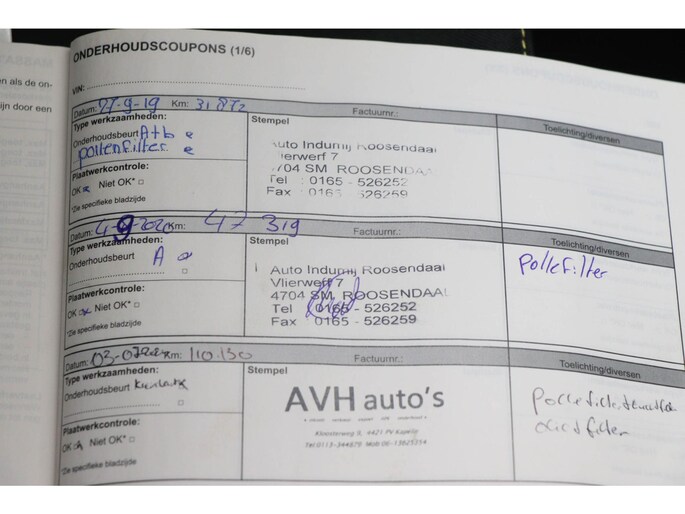 ONDERHOUDSCOUPONS (1/6)
en als de on-
ijn door een
VIN:
Datum: 27-9-19 Km: 31872 Factuurnr.:
Type werkzaamheden:
Onderhoudsbeurt A+b
pollenfilter
Plaatwerkcontrole:
OK Niet OK*
*Zie specifieke bladzijde
Stempel
Auto Indumij Roosendaal
Vlierwerf 7
4704 SM ROOSENDAAL
Tel : 0165 - 526252
Fax : 0165 - 526259
Toelichting/diversen
Datum: 4-9-2020 Km: 47319
Type werkzaamheden:
Onderhoudsbeurt A
Plaatwerkcontrole:
OK Niet OK*
*Zie specifieke bladzijde
Stempel
Auto Indumij Roosendaal
Vlierwerf 7
4704 SM ROOSENDAAL
Tel 0165 - 526252
Fax 0165 - 526259
Toelichting/diversen
Pollefilter
Datum: Km: 110.130 Factuurnr.:
Type werkzaamheden:
Onderhoudsbeurt
Plaatwerkcontrole:
OK Niet OK*
*Zie specifieke bladzijde
Stempel
AVH auto's
Kloosterweg 9, 4421 PV Kapelle
Tel 0113-344879 Mob 06-13625314
Toelichting/diversen